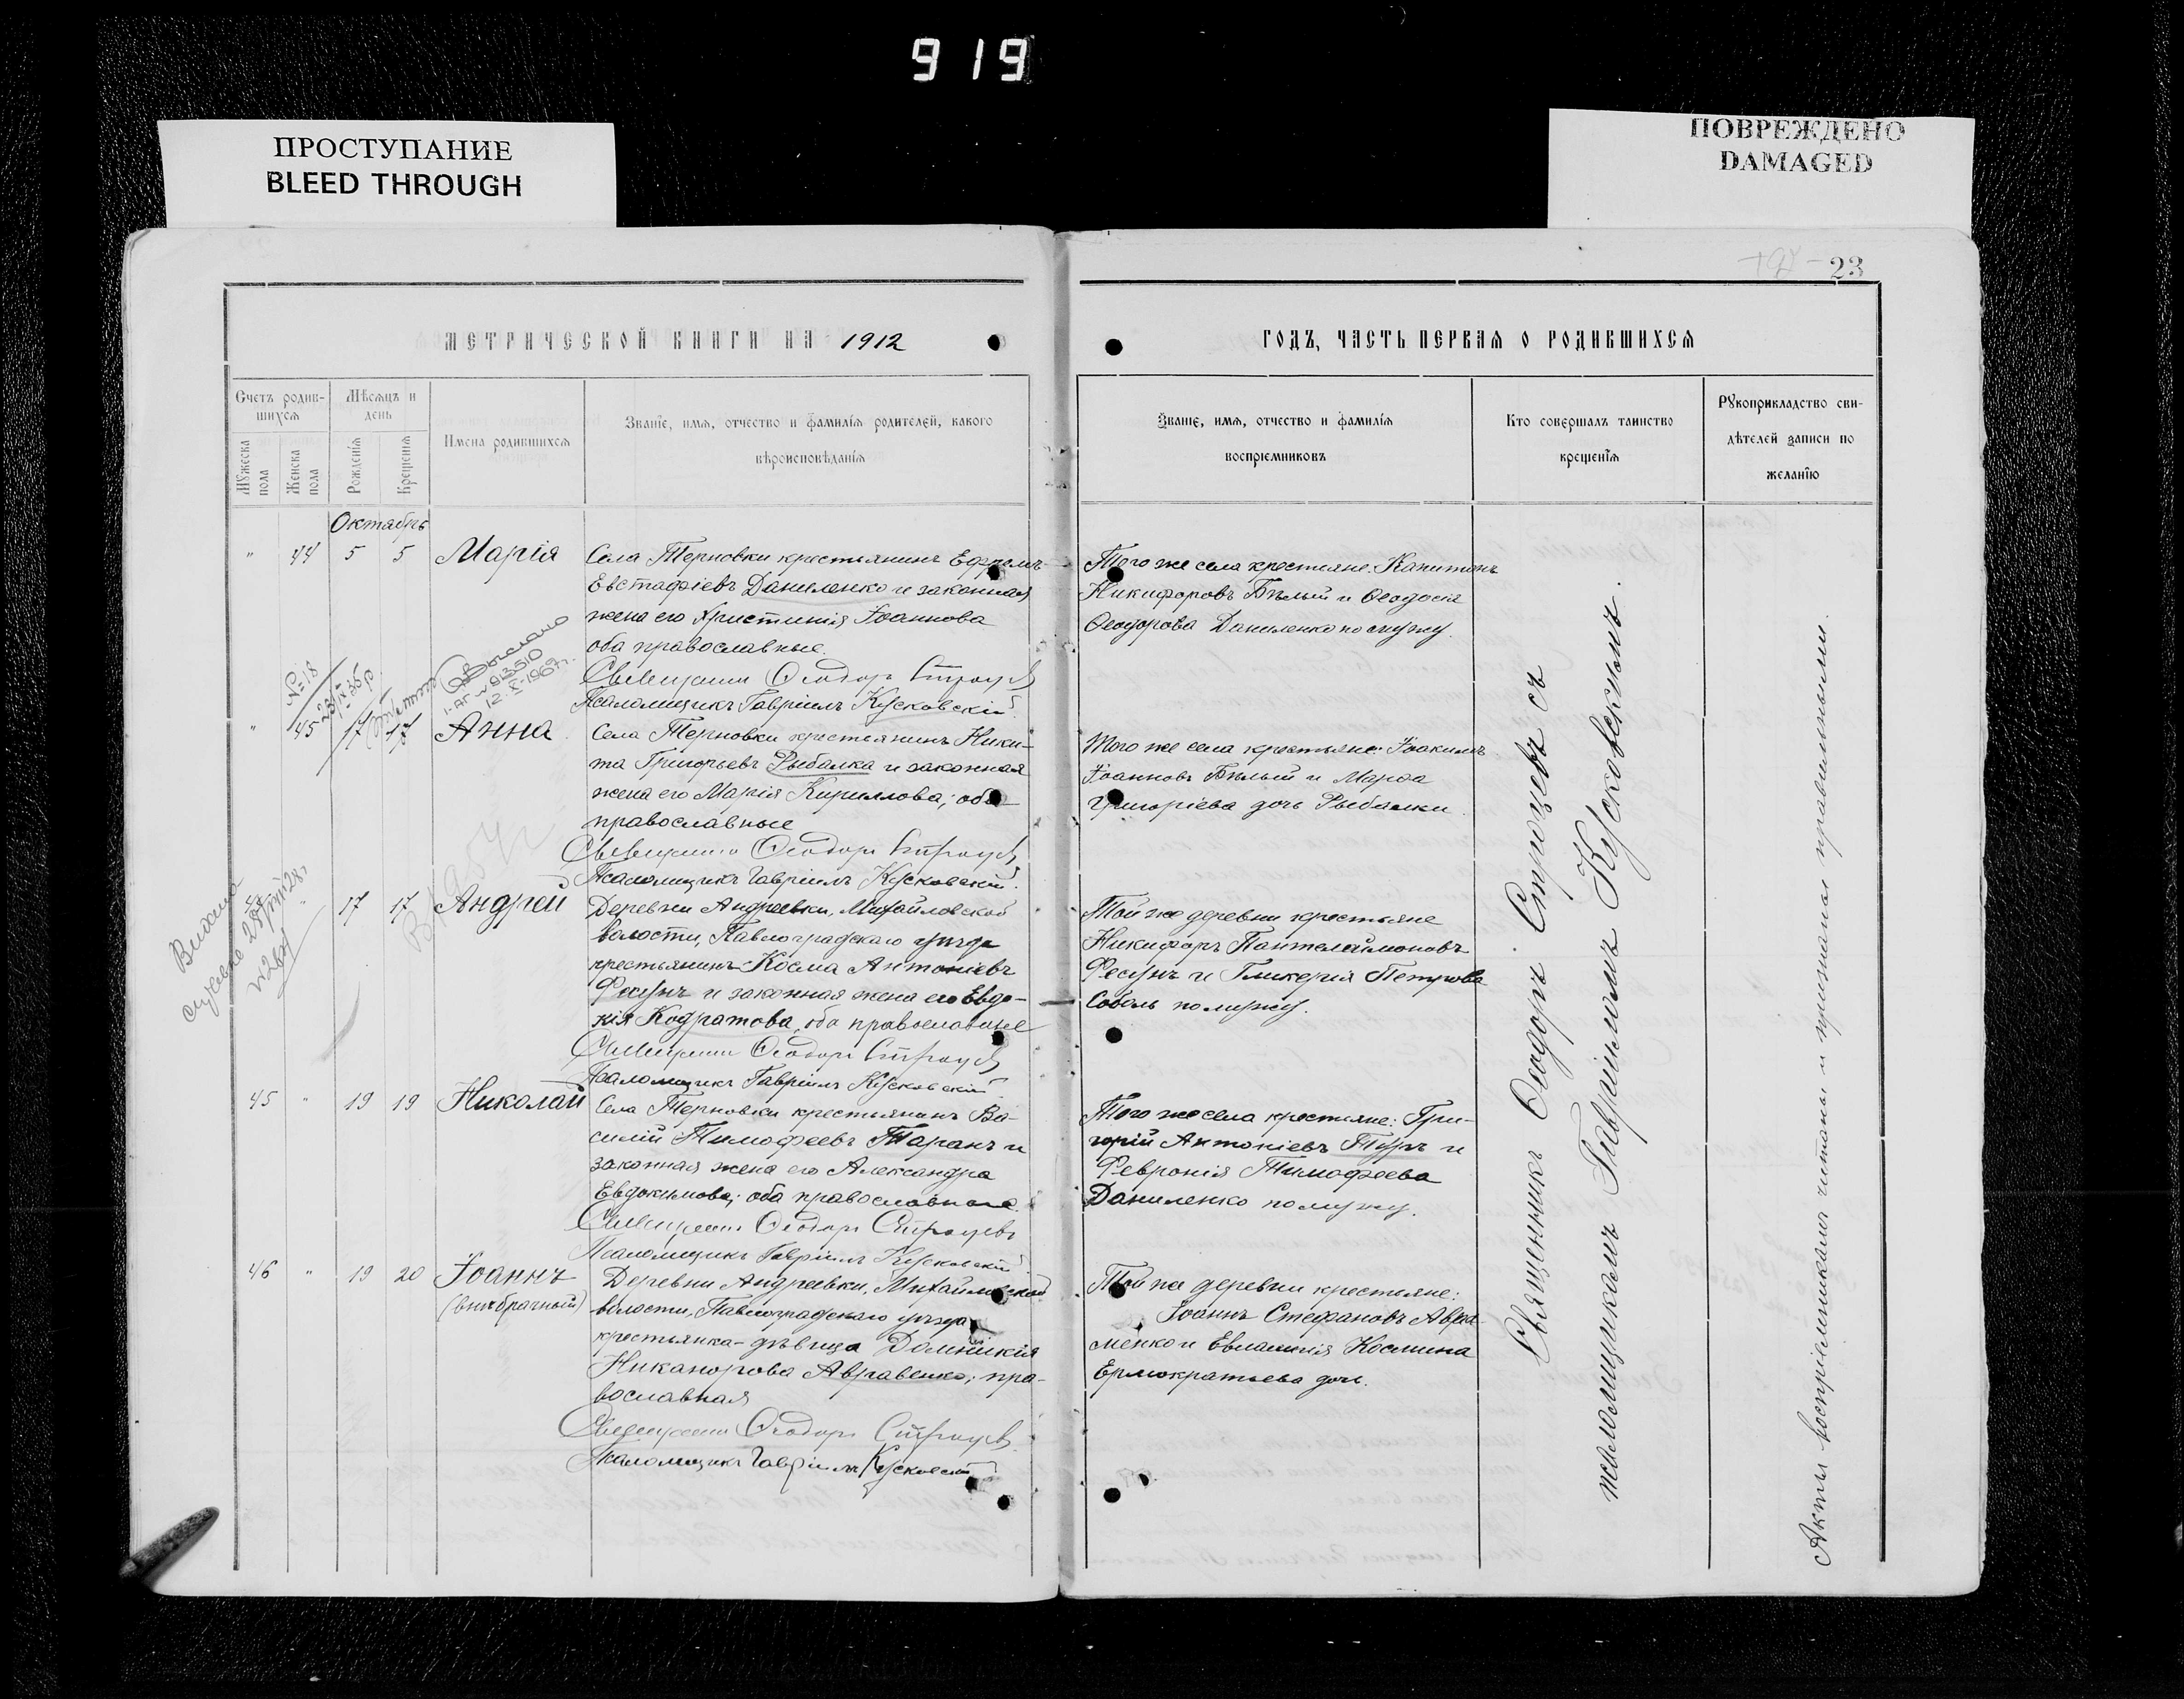 919
ПРОСТУПАНИЕ
BLEED THROUGH
ПОВРЕЖДЕНО
DAMAGED
23
МЕТРИЧЕСКОЙ КНИГИ НА 1912
ГОДЪ, ЧАСТЬ ПЕРВАЯ О РОДИВШИХСЯ
Счетъ родив-
шихся
Мужеска пола
Женска пола
Мѣсяцъ и
день
Рожденія
Крещенія
Имена родившихся
Званіе, имя, отчество и фамилія родителей, какого
вѣроисповѣданія
Званіе, имя, отчество и фамилія
воспріемниковъ
Кто совершалъ таинство
крещенія
Рукоприкладство сви-
дѣтелей записи по
желанію
Октябрь
" 44 5 5 Марія
Села Терновки крестьянинъ Ефремъ
Евстафіевъ Даниленко и законная
жена его Христинія Іоаннова
оба православные.
Священникъ Ѳеодоръ Строцевъ
Псаломщикъ Гавріилъ Кусковскій.
Того же села крестьяне: Капитонъ
Никифоровъ Бѣлый и Ѳеодосія
Ѳеодорова Даниленко по мужу.
№ 18
Выслано
12-X-1967г.
" 45 17 17 Анна
Села Терновки крестьянинъ Ники-
та Григорьевъ Рыбалка и законная
жена его Марія Кириллова; оба
православные
Священникъ Ѳеодоръ Строцевъ
Псаломщикъ Гавріилъ Кусковскій.
Того же села крестьяне: Іоакимъ
Іоанновъ Бѣлый и Марѳа
Григоріева дочь Рыбалки.
" 17 17 Андрей
Деревни Андреевки, Михайловской
волости, Павлоградскаго уѣзда
крестьянинъ Косма Антоніевъ
Фесунъ и законная жена его Евдо-
кія Кодратова, оба православные
Священникъ Ѳеодоръ Строцевъ
Псаломщикъ Гавріилъ Кусковскій
Той же деревни крестьяне
Никифоръ Пантелеймоновъ
Фесунъ и Гликерія Петрова
Соболь по мужу.
45 " 19 19 Николай
Села Терновки крестьянинъ Ва-
силій Тимофеевъ Таранъ и
законная жена его Александра
Евдокимова; оба православные.
Священникъ Ѳеодоръ Строцевъ
Псаломщикъ Гавріилъ Кусковскій.
Того же села крестьяне: Гри-
горій Антоніевъ Туръ и
Февронія Тимофеева
Даниленко по мужу.
46 " 19 20 Іоаннъ
(внѣбрачный)
Деревни Андреевки, Михайловской
волости, Павлоградскаго уѣзда
крестьянка-дѣвица Домникія
Никанорова Авраменко; пра-
вославная
Священникъ Ѳеодоръ Строцевъ.
Псаломщикъ Гавріилъ Кусковскій
Той же деревни крестьяне:
Іоаннъ Стефановъ Авра-
менко и Евлампія Космина
Ермократьева дочь.
Священникъ Ѳеодоръ Строцевъ съ
псаломщикомъ Гавріиломъ Кусковскимъ.
Акты воспріемниками читаны и признаны правильными.